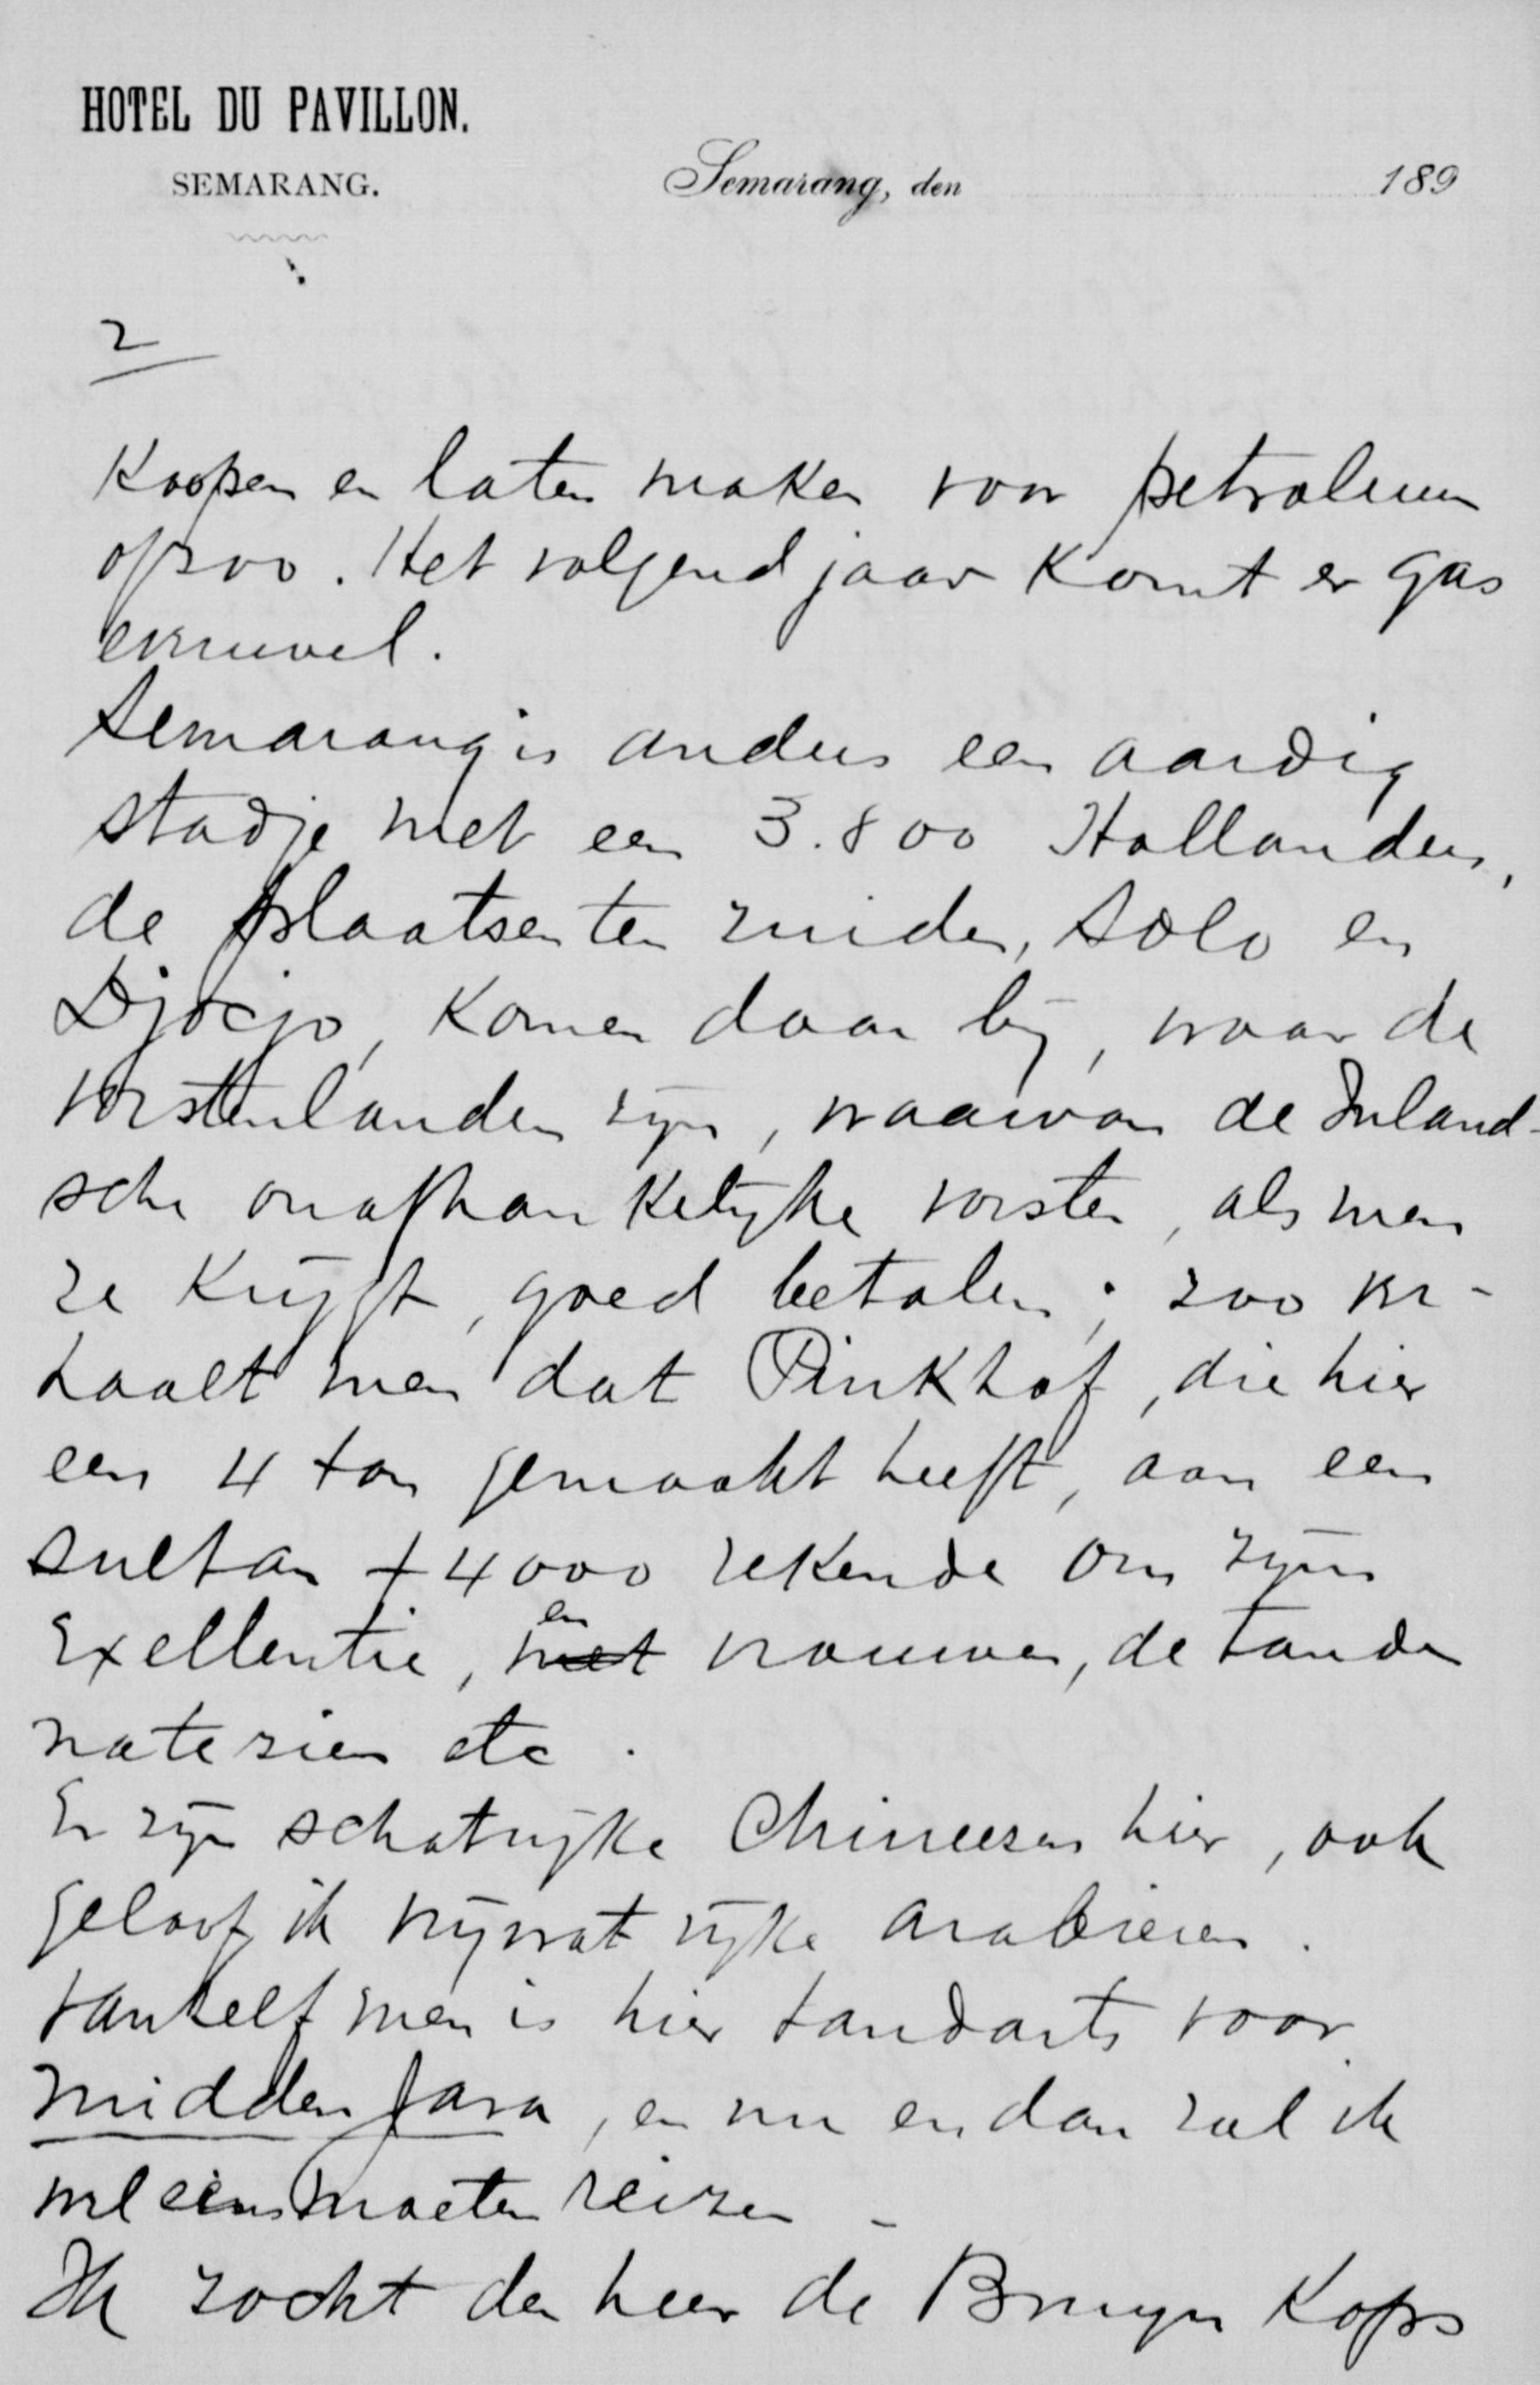 HOTEL DU PAVILLON.
SEMARANG.
Semarang, den 189
2
Koopen en laten maken voor petroleum
of zoo. Het volgend jaar komt er gas
evenwel.
Semarang is anders een aardig
stadje met een 3.800 Hollanders,
de plaatsen ten zuiden, Solo en
Djocjo, komen daar bij, waar de
vorstenlanden zijn, waarvan de Inland-
sche onafhankelijke vorsten, als men
ze krijgt, goed betalen; zoo ver-
haalt men dat Pinkhof, die hier
een 4 ton gemaakt heeft, aan een
sultan f 4000 rekende om zijn
Exellentie, met en vrouwen, de tanden
na te zien etc.
Er zijn schatrijke Chineezen hier, ook
geloof ik vrij wat rijke Arabieren.
Vanzelf men is hier tandarts voor
midden Java, en nu en dan zal ik
wel eens moeten reizen -
Ik zocht den heer de Bruyn Kops